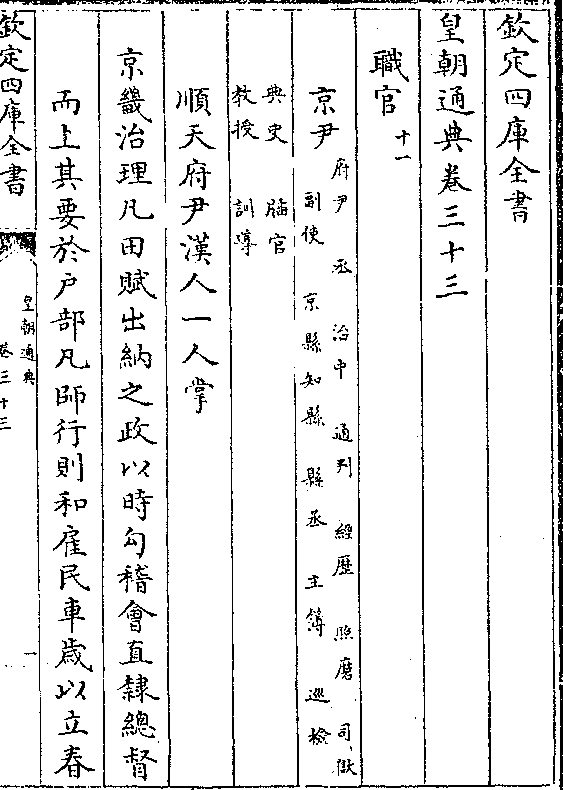 欽定四庫全書
皇朝通典卷三十三
職官十一
京尹府尹 丞 治中 通判 經歷 照磨 司獄
副使 京縣知縣 縣丞 主簿 巡檢
典史 牐官
教授 訓導
順天府尹漢人一人掌
京畿治理凡田賦出納之政以時勾稽會直隸總督
而上其要於戶部凡師行則和雇民車歲以立春
欽定四庫全書
皇朝通典
卷三十三
一